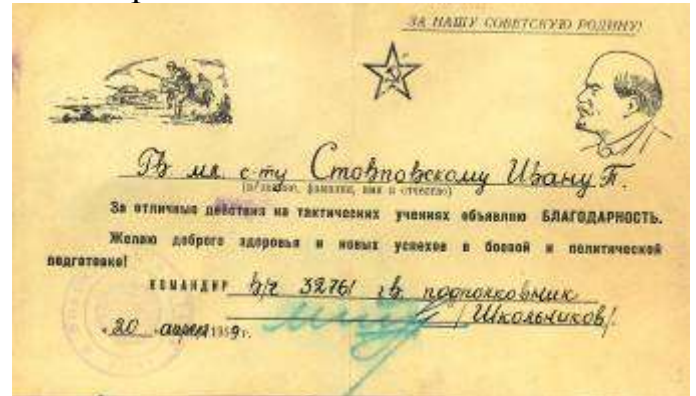 ЗА НАШУ СОВЕТСКУЮ РОДИНУ!
Гв. мл. с-ту Стовповскому Ивану П.
(в/звание, фамилия, имя и отчество)
За отличные действия на тактических учениях объявляю БЛАГОДАРНОСТЬ.
Желаю доброго здоровья и новых успехов в боевой и политической
подготовке!
КОМАНДИР в/ч 32761 гв. подполковник
/Школьников/.
«20» апреля 1959 г.